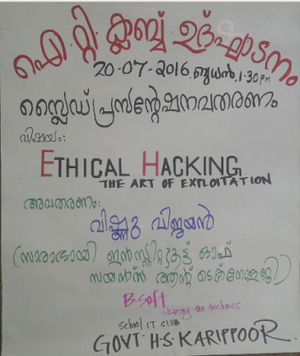 ഐ.റ്റി.ക്ലബ്ബ് ഉദ്ഘാടനം
20-07-2016, ബുധൻ, 1:30 pm
സ്ലൈഡ് പ്രസന്റേഷനവതരണം
വിഷയം:
ETHICAL HACKING
THE ART OF EXPLOITATION
അവതരണം:
വിഷ്ണു വിജയൻ
(സരാഭായി ഇൻസ്റ്റിറ്റ്യൂട്ട് ഓഫ്
സയൻസ് ആന്റ് ടെക്നോളജി)
B-Soft
sharing the technics
School IT CLUB
GOVT. H.S. KARIPPOOR